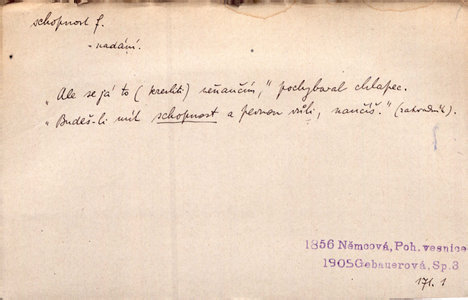 schopnost f.
- nadání.
„Ale se já to (kreslit) nenaučím,“ pochyboval chlapec.
„Budeš-li mít schopnost a pevnou vůli, naučíš.“ (zahradník).
1856 Němcová, Poh. vesnice
1905 Gebauerová, Sp. 3
171. 1